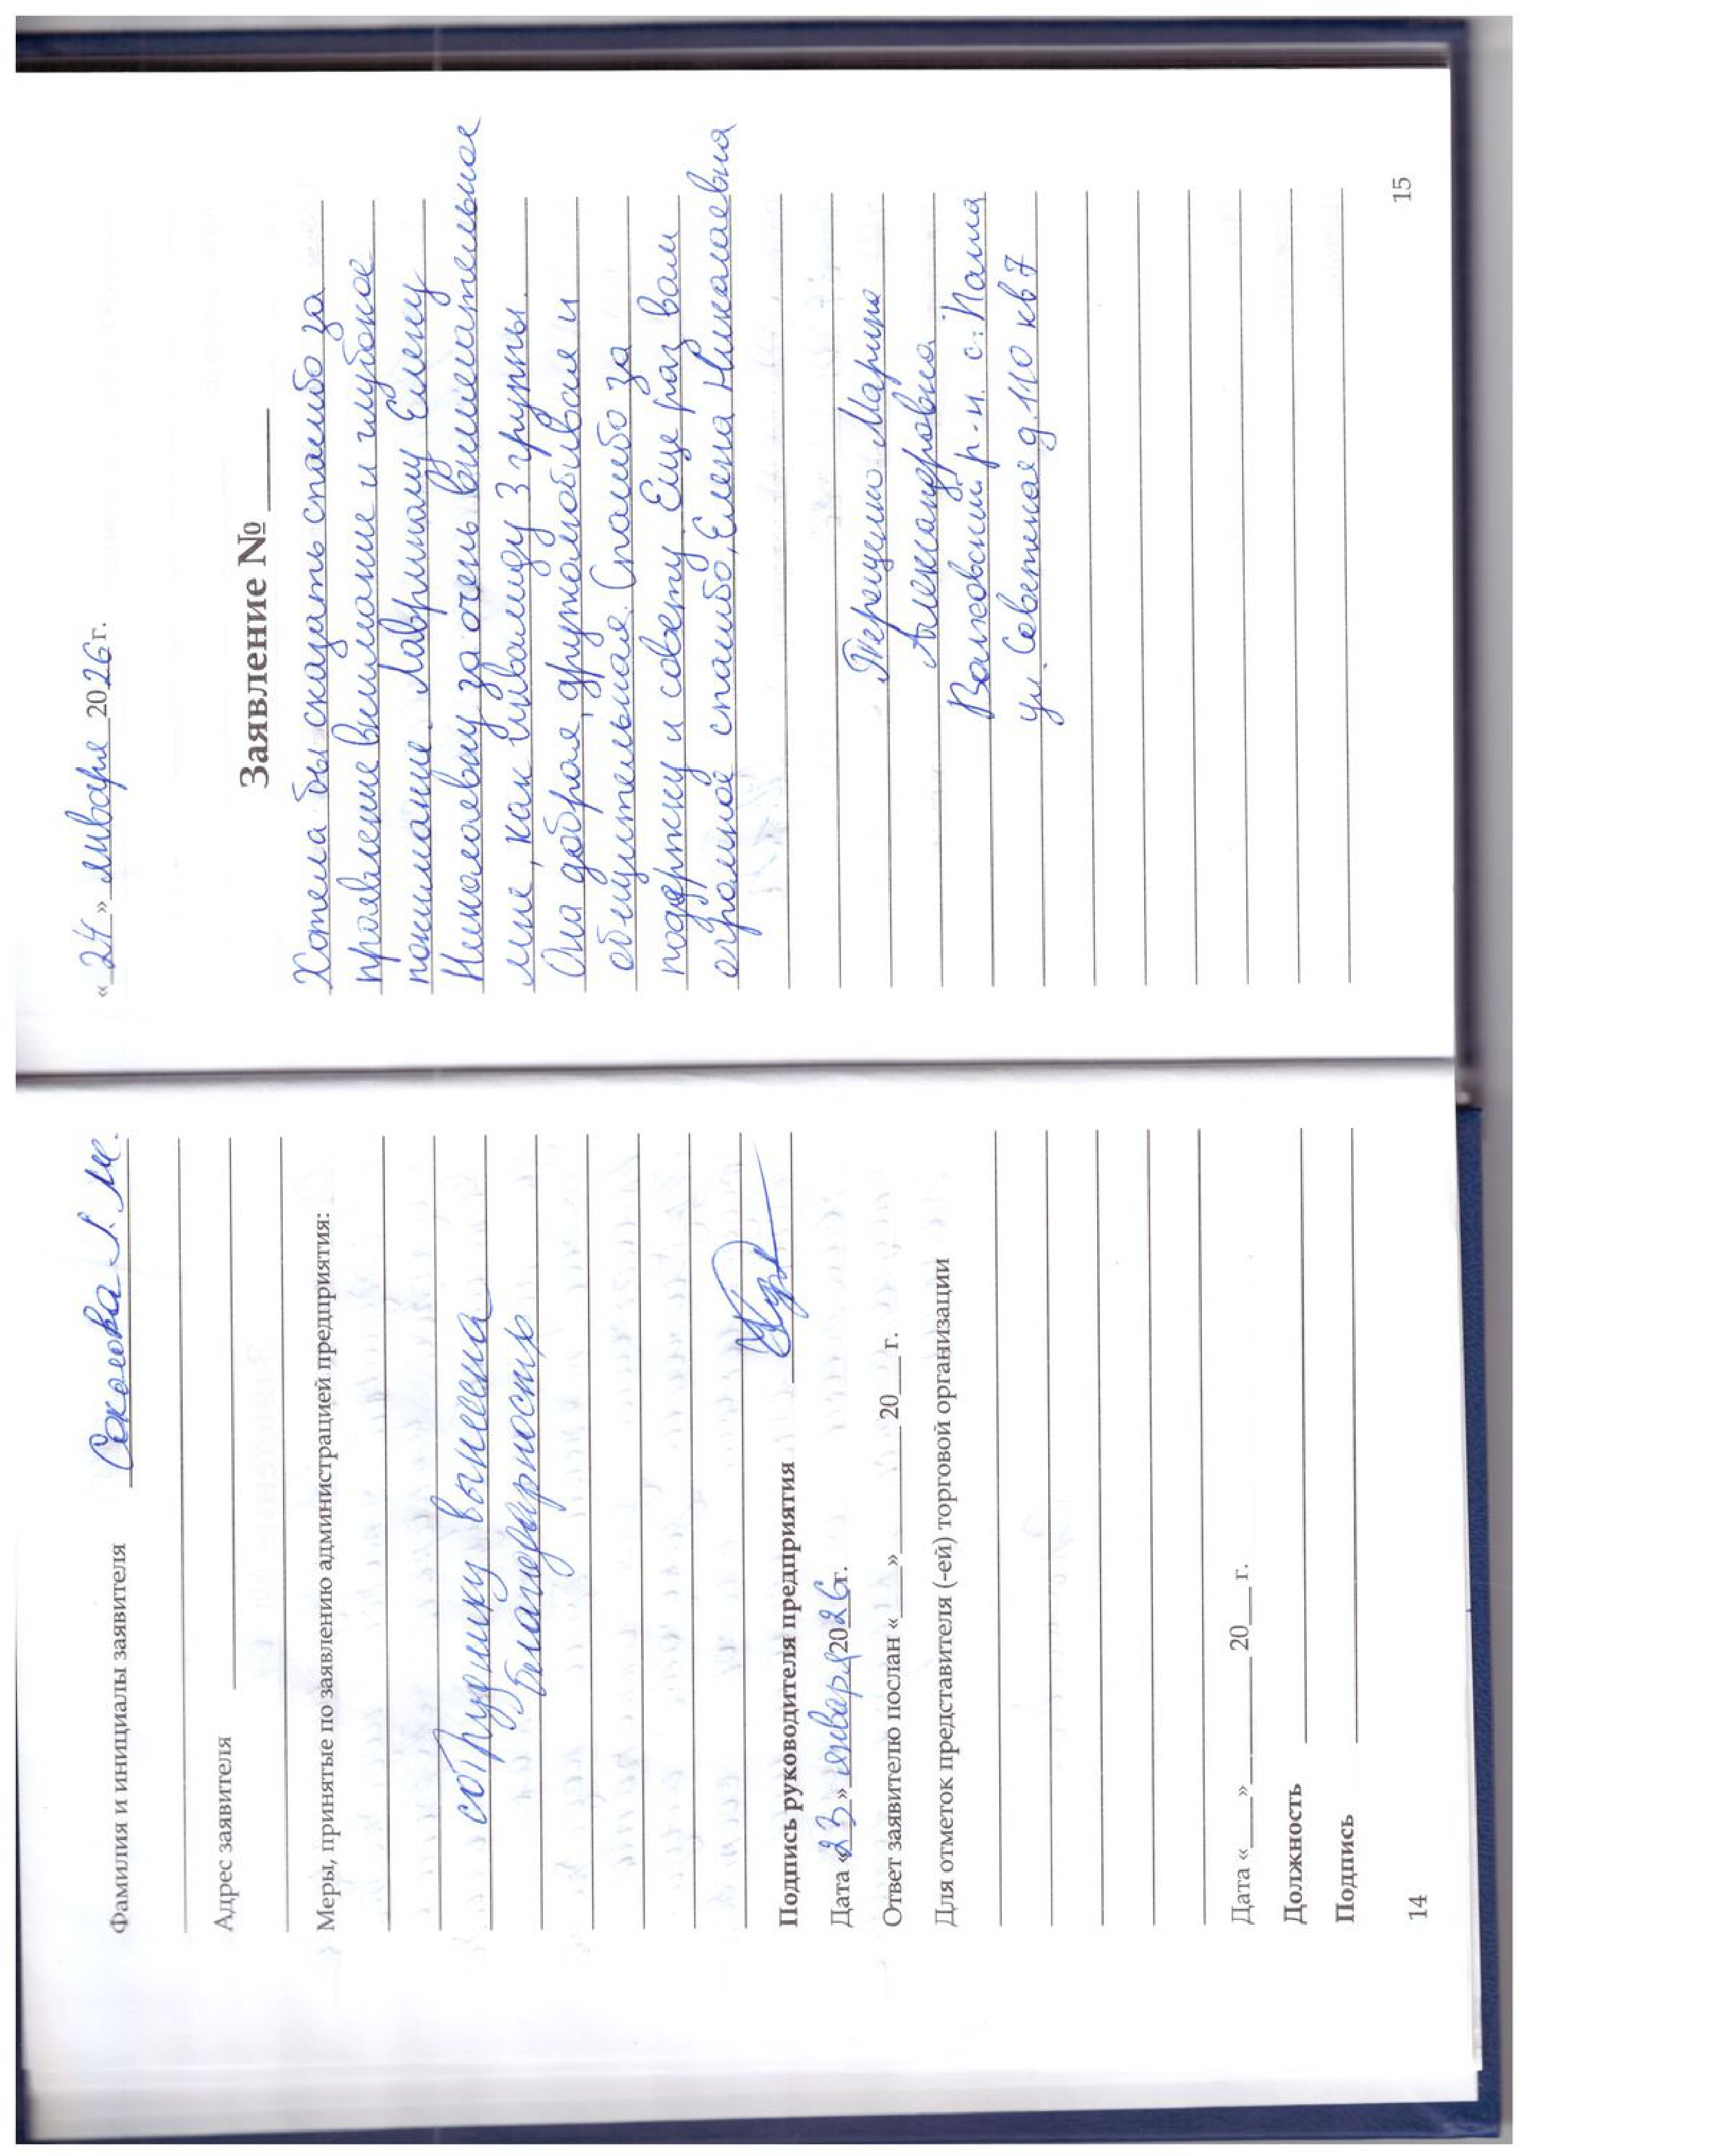 Фамилия и инициалы заявителя Соколова Л. М.
Адрес заявителя
Меры, принятые по заявлению администрацией предприятия:
сотруднику вынесена
благодарность
Подпись руководителя предприятия
Дата «23» января 2026г.
Ответ заявителю послан «___»________ 20___г.
Для отметок представителя (-ей) торговой организации
Дата «___»________ 20___г.
Должность
Подпись
14
«24» января 2026г.
Заявление № ____
Хотела бы сказать спасибо за
проявление внимание и глубокое
понимание. Лаврикову Елену
Николаевну за очень внимательное
мне, как инвалиду 3 групы.
Она добрая, дружолюбивая и
общительная. Спасибо за
подержку и советы. Еще раз вам
огромное спасибо, Елена Николаевна
Терещенко Марина
Александровна
Волховский р-н. с. Паша
ул. Советская д.110 кв 7
15